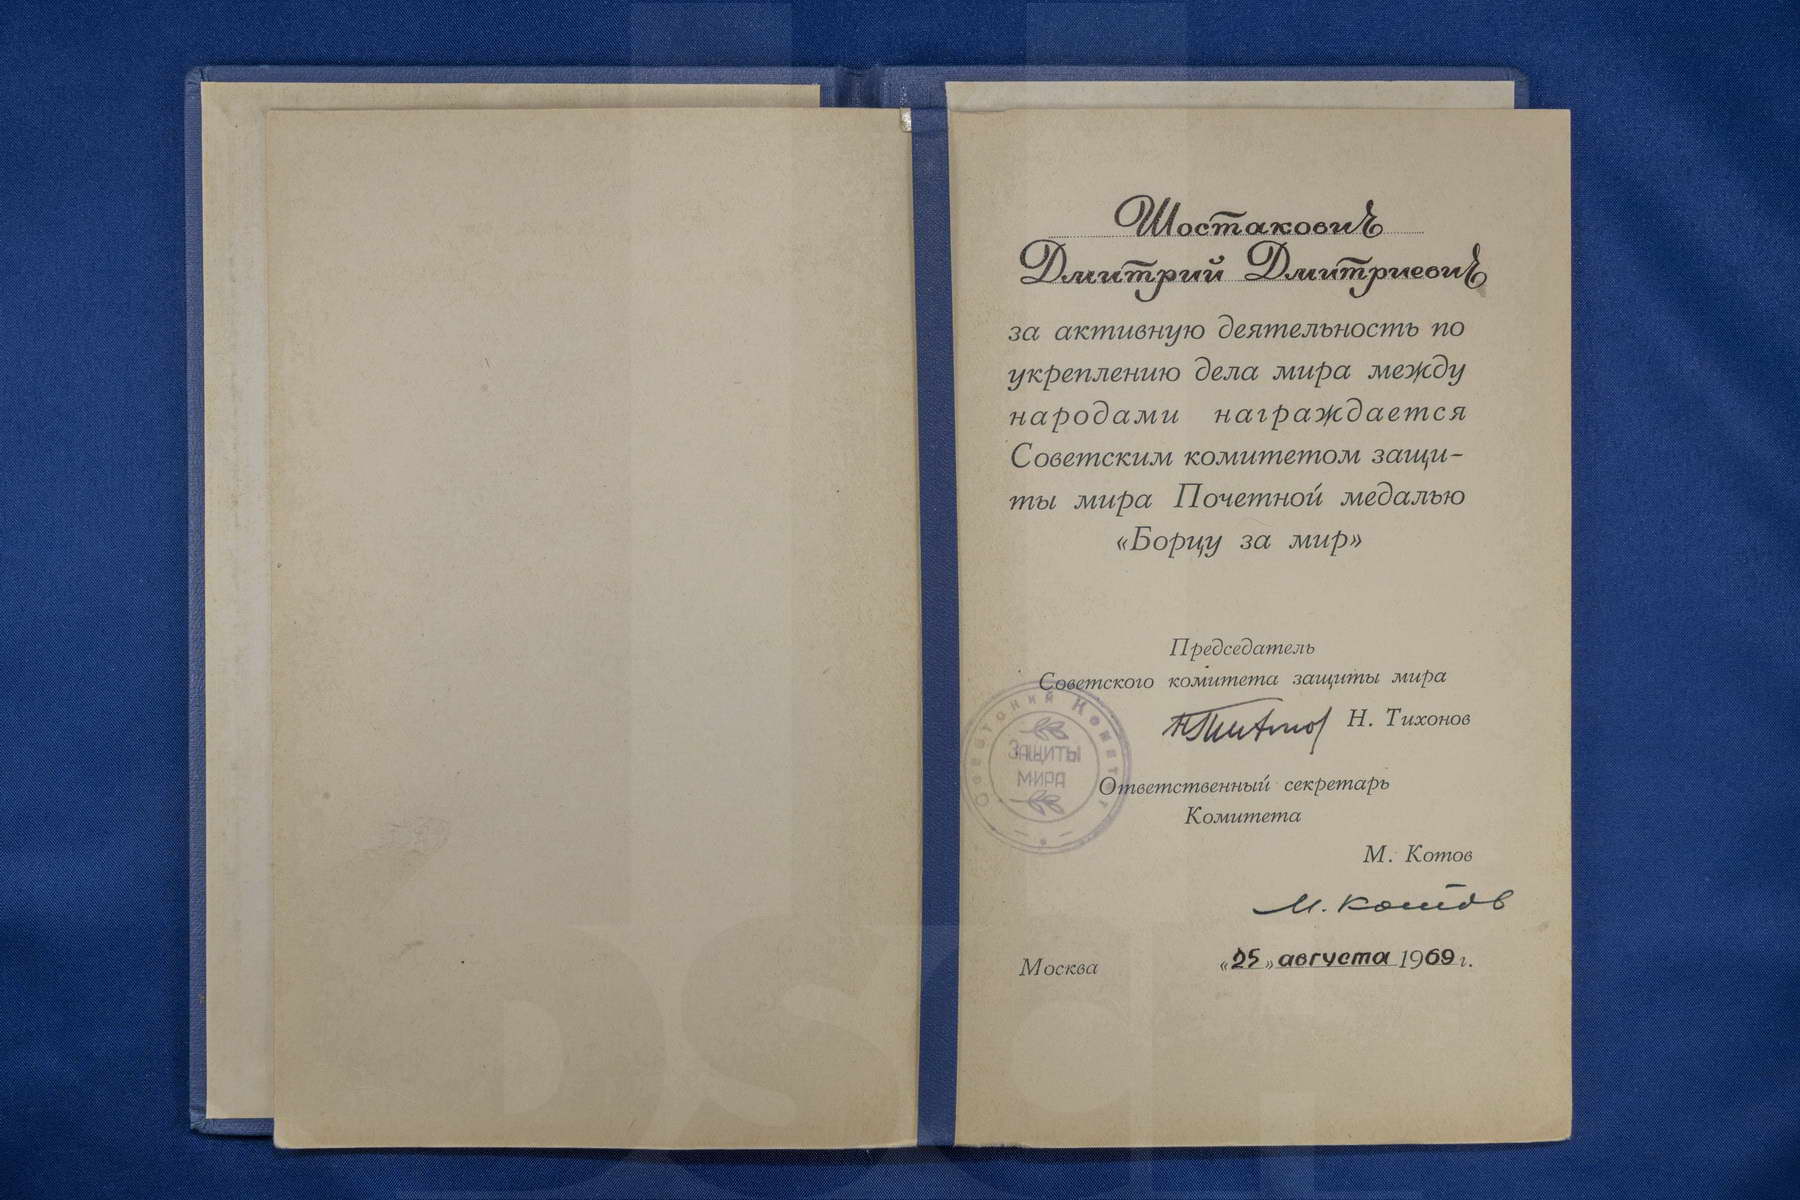 Шостакович
Дмитрий Дмитриевич
за активную деятельность по
укреплению дела мира между
народами награждается
Советским комитетом защи-
ты мира Почетной медалью
«Борцу за мир»
Председатель
Советского комитета защиты мира
Н. Тихонов
Советский Комитет
Защиты
мира
Ответственный секретарь
Комитета
М. Котов
М. Котов
Москва «25» августа 1969 г.